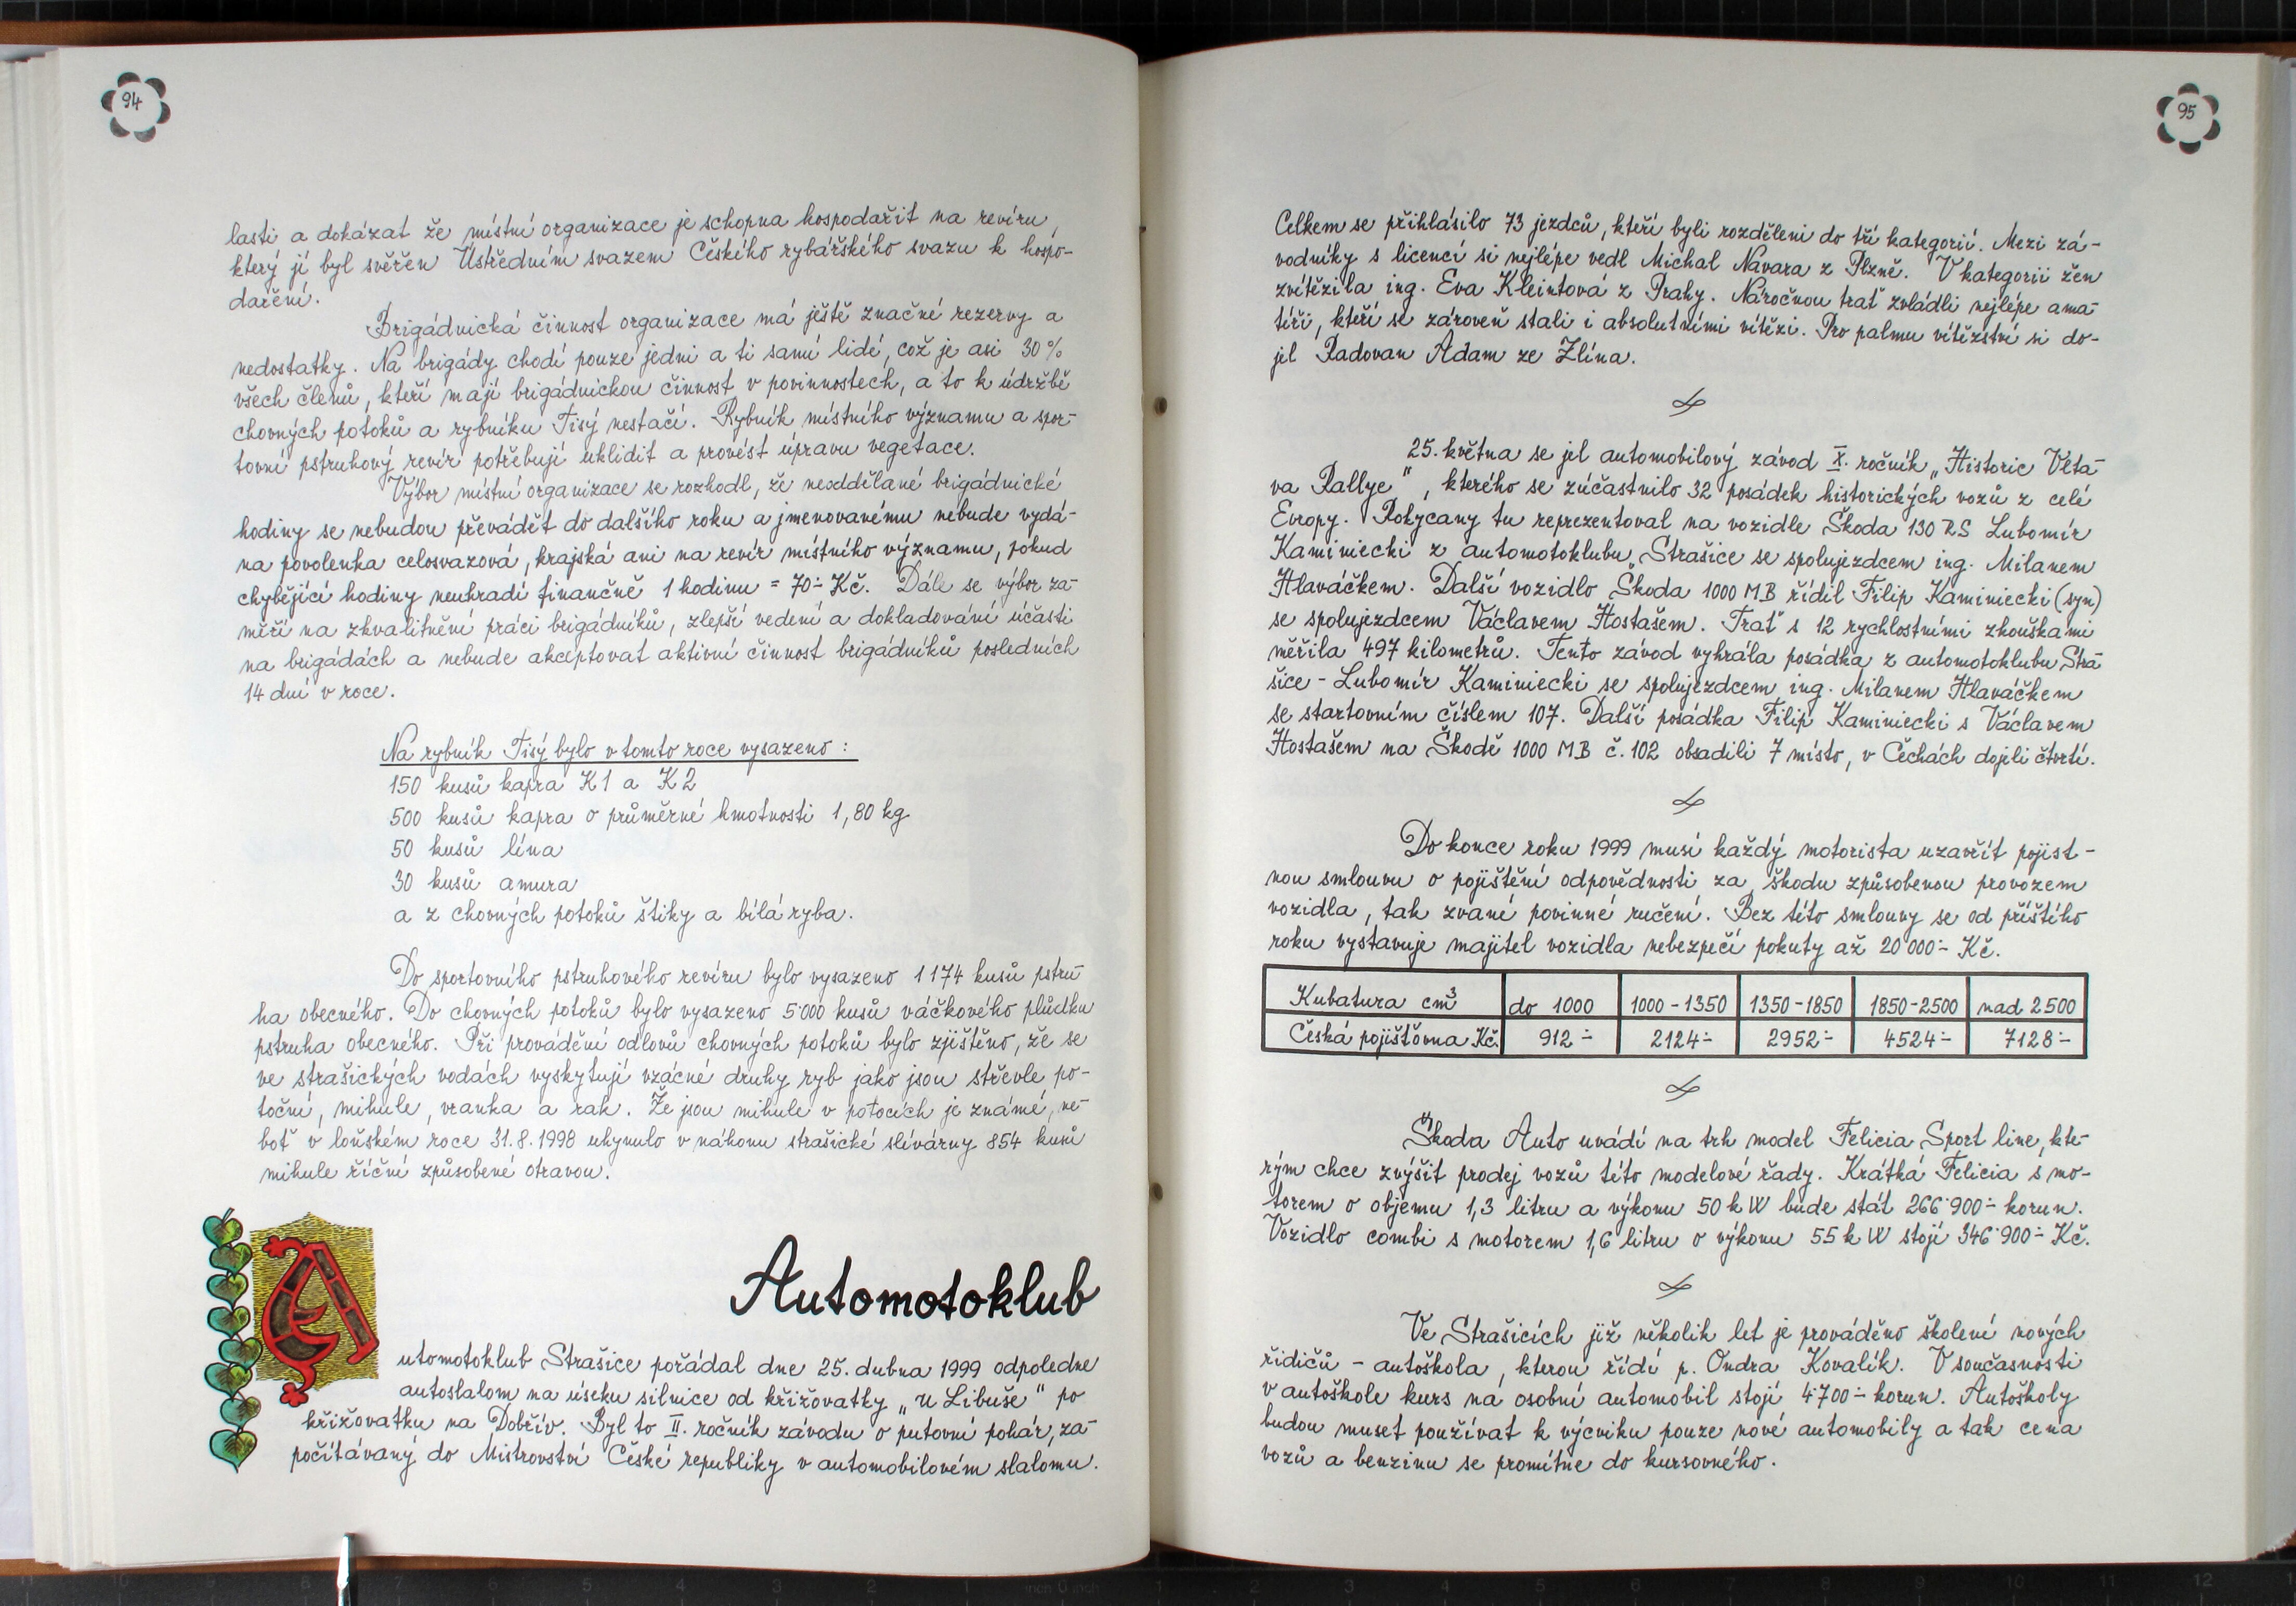 94
lasti a dokázat že místní organizace je schopna hospodařit na revíru,
který jí byl svěřen Ústředním svazem Českého rybářského svazu k hospo-
daření.
Brigádnická činnost organizace má ještě značné rezervy a
nedostatky. Na brigády chodí pouze jedni a ti samí lidé, což je asi 30%
všech členů, kteří mají brigádnickou činnost v povinnostech, a to k údržbě
chovných potoků a rybníku Tisý nestačí. Rybník místního významu a spor-
tovní pstruhový revír potřebují uklidit a provést úpravu vegetace.
Výbor místní organizace se rozhodl, že neoddělané brigádnické
hodiny se nebudou převádět do dalšího roku a jmenovanému nebude vydá-
na povolenka celosvazová, krajská ani na revír místního významu, pokud
chybějící hodiny neuhradí finančně 1 hodinu = 70.- Kč. Dále se výbor za-
měří na zkvalitnění práci brigádníků, zlepší vedení a dokladování účasti
na brigádách a nebude akceptovat aktivní činnost brigádníků posledních
14 dní v roce.
Na rybník Tisý bylo v tomto roce vysazeno :
150 kusů kapra K1 a K2
500 kusů kapra o průměrné hmotnosti 1,80 kg
50 kusů lína
30 kusů amura
a z chovných potoků štiky a bílá ryba.
Do sportovního pstruhového revíru bylo vysazeno 1174 kusů pstru-
ha obecného. Do chovných potoků bylo vysazeno 5.000 kusů váčkového plůdku
pstruha obecného. Při provádění odlovů chovných potoků bylo zjištěno, že se
ve strašických vodách vyskytují vzácné druhy ryb jako jsou střevle po-
toční, mihule, vranka a rak. Že jsou mihule v potocích je známé, ne-
boť v loňském roce 31.8.1998 uhynulo v náhonu strašické slévárny 854 kusů
mihule říční způsobené otravou.
Automotoklub
Automotoklub Strašice pořádal dne 25. dubna 1999 odpoledne
autoslalom na úseku silnice od křižovatky „u Libuše" po
křižovatku na Dobřív. Byl to II. ročník závodu o putovní pohár, za-
počítávaný do Mistrovství České republiky v automobilovém slalomu.
95
Celkem se přihlásilo 73 jezdců, kteří byli rozděleni do tří kategorií. Mezi zá-
vodníky s licencí si nejlépe vedl Michal Navara z Plzně. V kategorii žen
zvítězila ing. Eva Kleintová z Prahy. Náročnou trať zvládli nejlépe ama-
téři, kteří se zároveň stali i absolutními vítězi. Pro palmu vítězství si do-
jel Radovan Adam ze Zlína.
25. května se jel automobilový závod X. ročník „Historic Vlta-
va Rallye", kterého se zúčastnilo 32 posádek historických vozů z celé
Evropy. Rokycany tu reprezentoval na vozidle Škoda 130 RS Lubomír
Kaminiecki z automotoklubu Strašice se spolujezdcem ing. Milanem
Hlaváčkem. Další vozidlo Škoda 1000 MB řídil Filip Kaminiecki (syn)
se spolujezdcem Václavem Hostašem. Trať s 12 rychlostními zkouškami
měřila 497 kilometrů. Tento závod vyhrála posádka z automotoklubu Stra-
šice - Lubomír Kaminiecki se spolujezdcem ing. Milanem Hlaváčkem
se startovním číslem 107. Další posádka Filip Kaminiecki s Václavem
Hostašem na Škodě 1000 MB č. 102 obsadili 7 místo, v Čechách dojeli čtvrtí.
Do konce roku 1999 musí každý motorista uzavřít pojist-
nou smlouvu o pojištění odpovědnosti za škodu způsobenou provozem
vozidla, tak zvané povinné ručení. Bez této smlouvy se od příštího
roku vystavuje majitel vozidla nebezpečí pokuty až 20.000.- Kč.
Kubatura cm³ do 1000 1000-1350 1350-1850 1850-2500 nad 2500
Česká pojišťovna Kč. 912.- 2124.- 2952.- 4524.- 7128.-
Škoda Auto uvádí na trh model Felicia Sport line, kte-
rým chce zvýšit prodej vozů této modelové řady. Krátká Felicia s mo-
torem o objemu 1,3 litru a výkonu 50 kW bude stát 266.900.- korun.
Vozidlo combi s motorem 1,6 litru o výkonu 55 kW stojí 346.900.- Kč.
Ve Strašicích již několik let je prováděno školení nových
řidičů - autoškola, kterou řídí p. Ondra Kovalík. V současnosti
v autoškole kurs na osobní automobil stojí 4.700.- korun. Autoškoly
budou muset používat k výcviku pouze nové automobily a tak cena
vozů a benzinu se promítne do kursovného.